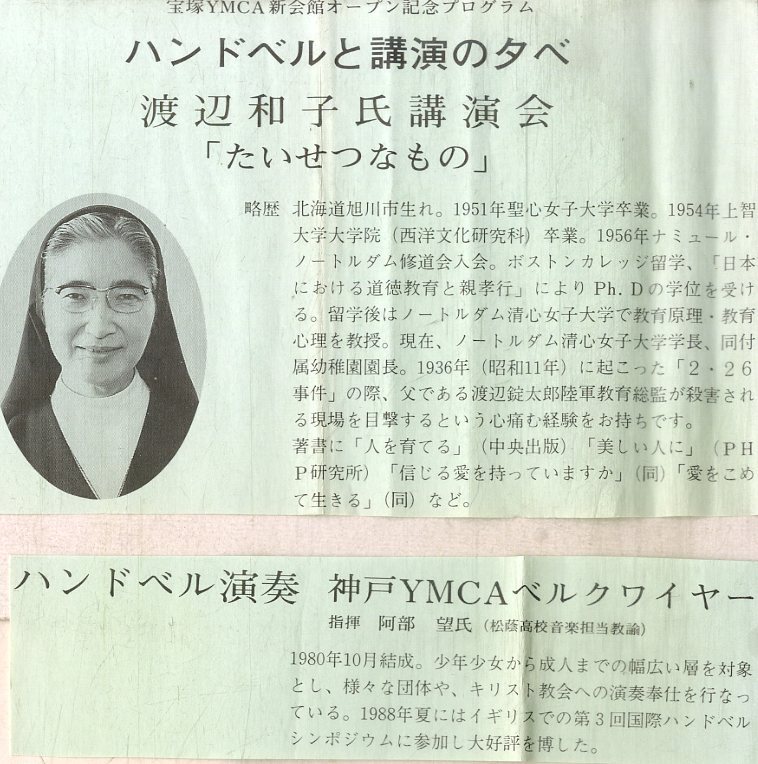 宝塚YMCA新会館オープン記念プログラム
ハンドベルと講演の夕べ
渡辺和子氏講演会
「たいせつなもの」
略歴 北海道旭川市生れ。1951年聖心女子大学卒業。1954年上智
大学大学院（西洋文化研究科）卒業。1956年ナミュール・
ノートルダム修道会入会。ボストンカレッジ留学、「日本
における道徳教育と親孝行」によりPh. Dの学位を受け
る。留学後はノートルダム清心女子大学で教育原理・教育
心理を教授。現在、ノートルダム清心女子大学学長、同付
属幼稚園園長。1936年（昭和11年）に起こった「2・26
事件」の際、父である渡辺錠太郎陸軍教育総監が殺害され
る現場を目撃するという心痛む経験をお持ちです。
著書に「人を育てる」（中央出版）「美しい人に」（PH
P研究所）「信じる愛を持っていますか」（同）「愛をこめ
て生きる」（同）など。
ハンドベル演奏 神戸YMCAベルクワイヤー
指揮 阿部 望氏（松蔭高校音楽担当教諭）
1980年10月結成。少年少女から成人までの幅広い層を対象
とし、様々な団体や、キリスト教会への演奏奉仕を行なっ
ている。1988年夏にはイギリスでの第3回国際ハンドベル
シンポジウムに参加し大好評を博した。